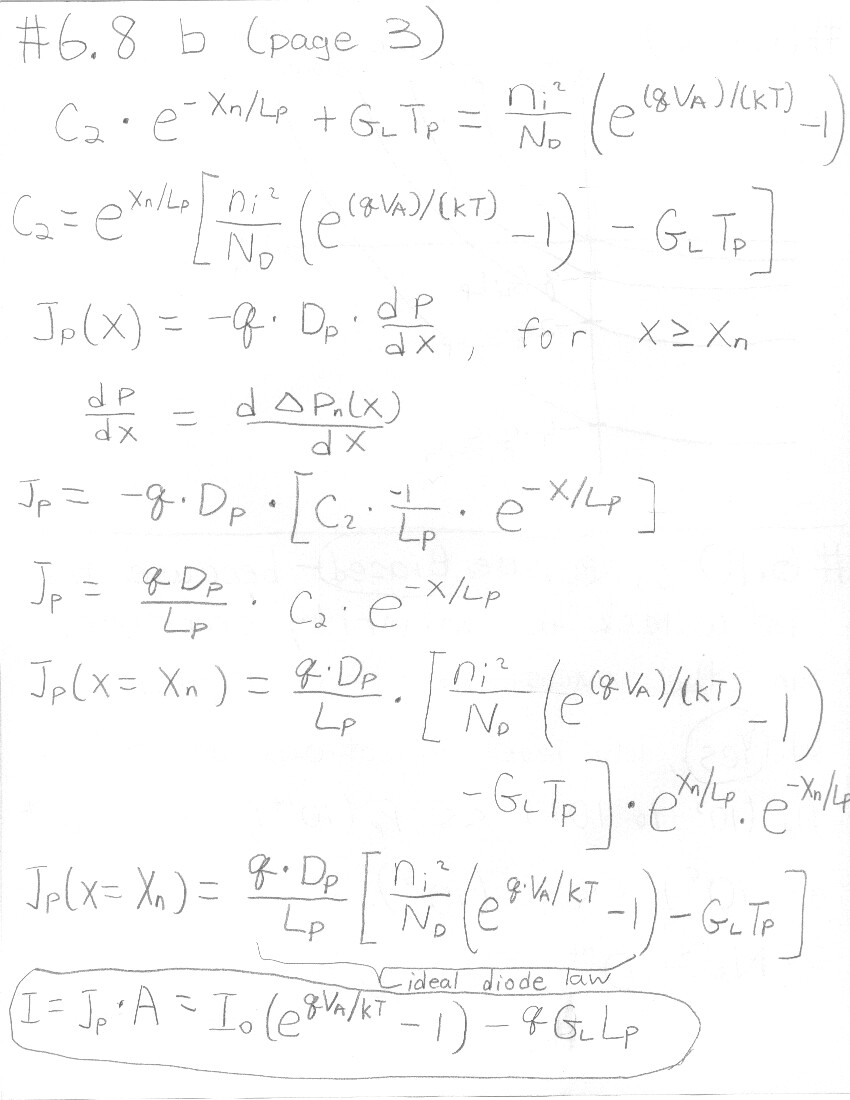 #6.8 b (page 3)
C₂ · e^(-Xn/Lp) + G_L Tp = ni²/N_D (e^((qV_A)/(kT)) - 1)
C₂ = e^(Xn/Lp) [ni²/N_D (e^((qV_A)/(kT)) - 1) - G_L Tp]
Jp(X) = -q · Dp · dp/dx, for X ≥ Xn
dp/dx = d Δpn(x)/dx
Jp = -q · Dp · [C₂ · -1/Lp · e^(-X/Lp)]
Jp = q Dp/Lp · C₂ · e^(-X/Lp)
Jp(X = Xn) = q · Dp/Lp · [ni²/N_D (e^((qV_A)/(kT)) - 1)
- G_L Tp] · e^(Xn/Lp) · e^(-Xn/Lp)
Jp(X = Xn) = q · Dp/Lp [ni²/N_D (e^(q·V_A/kT) - 1) - G_L Tp]
ideal diode law
I = Jp · A = I₀ (e^(qV_A/kT) - 1) - q G_L Lp